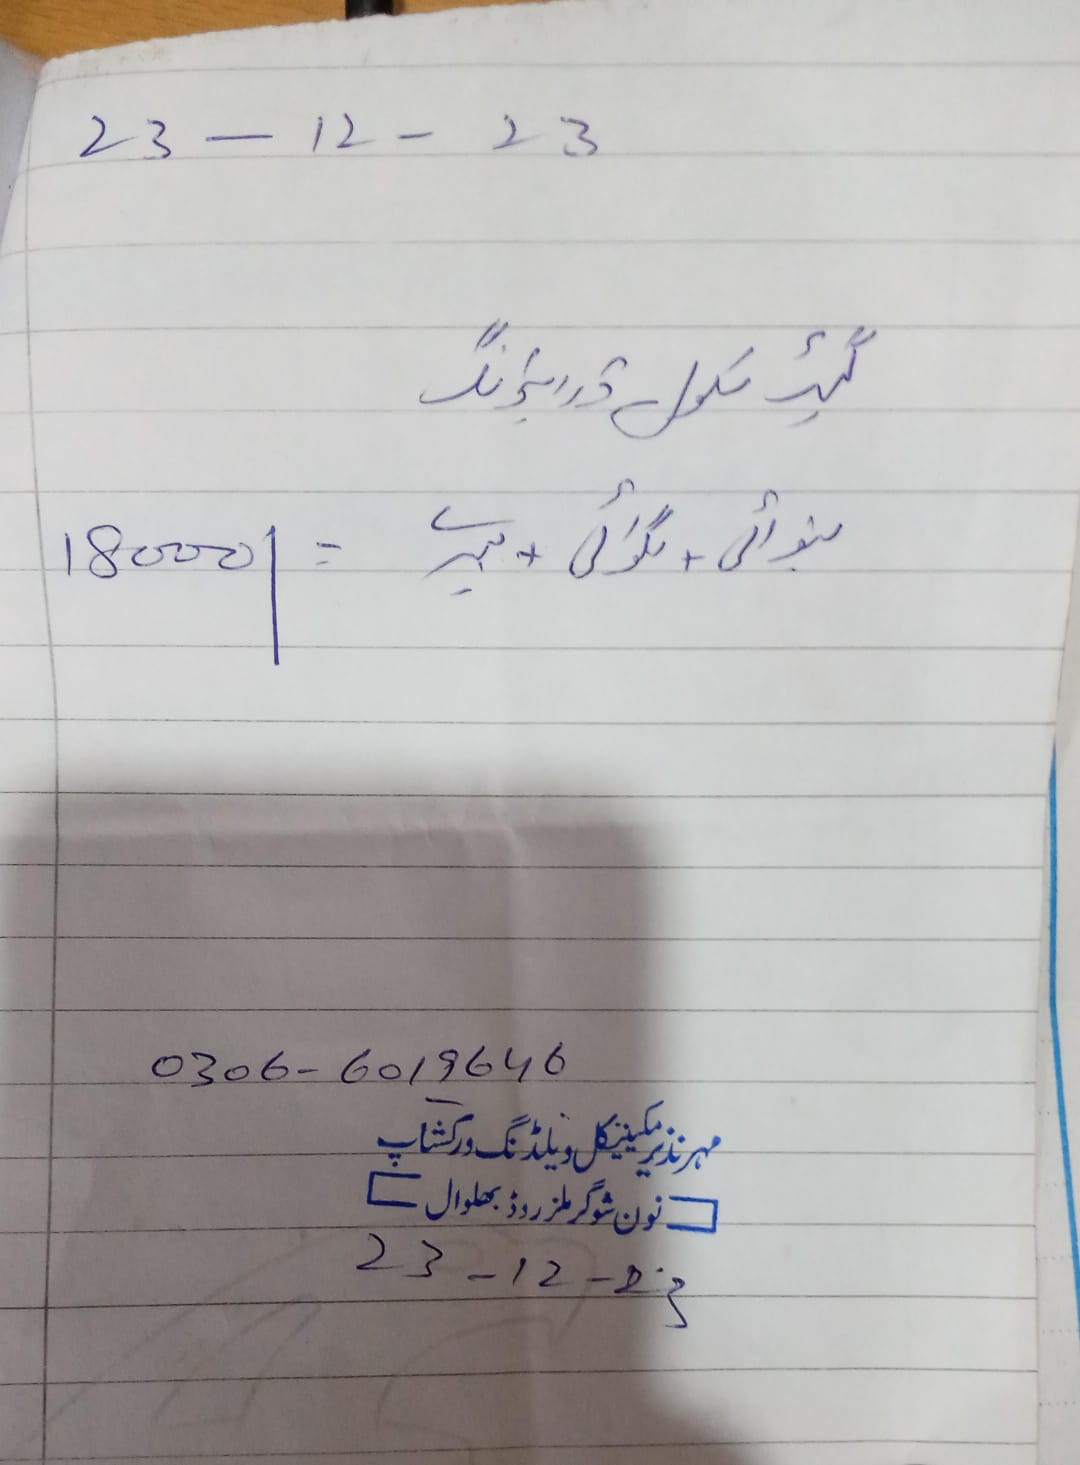 23 - 12 - 23
گیٹ سکول
بنوائی + لگوائی + = 18000/
0306-6019646
مہر نذیر مکینیکل ویلڈنگ ورکشاپ
نون شوگر ملز روڈ بھلوال
23-12-23